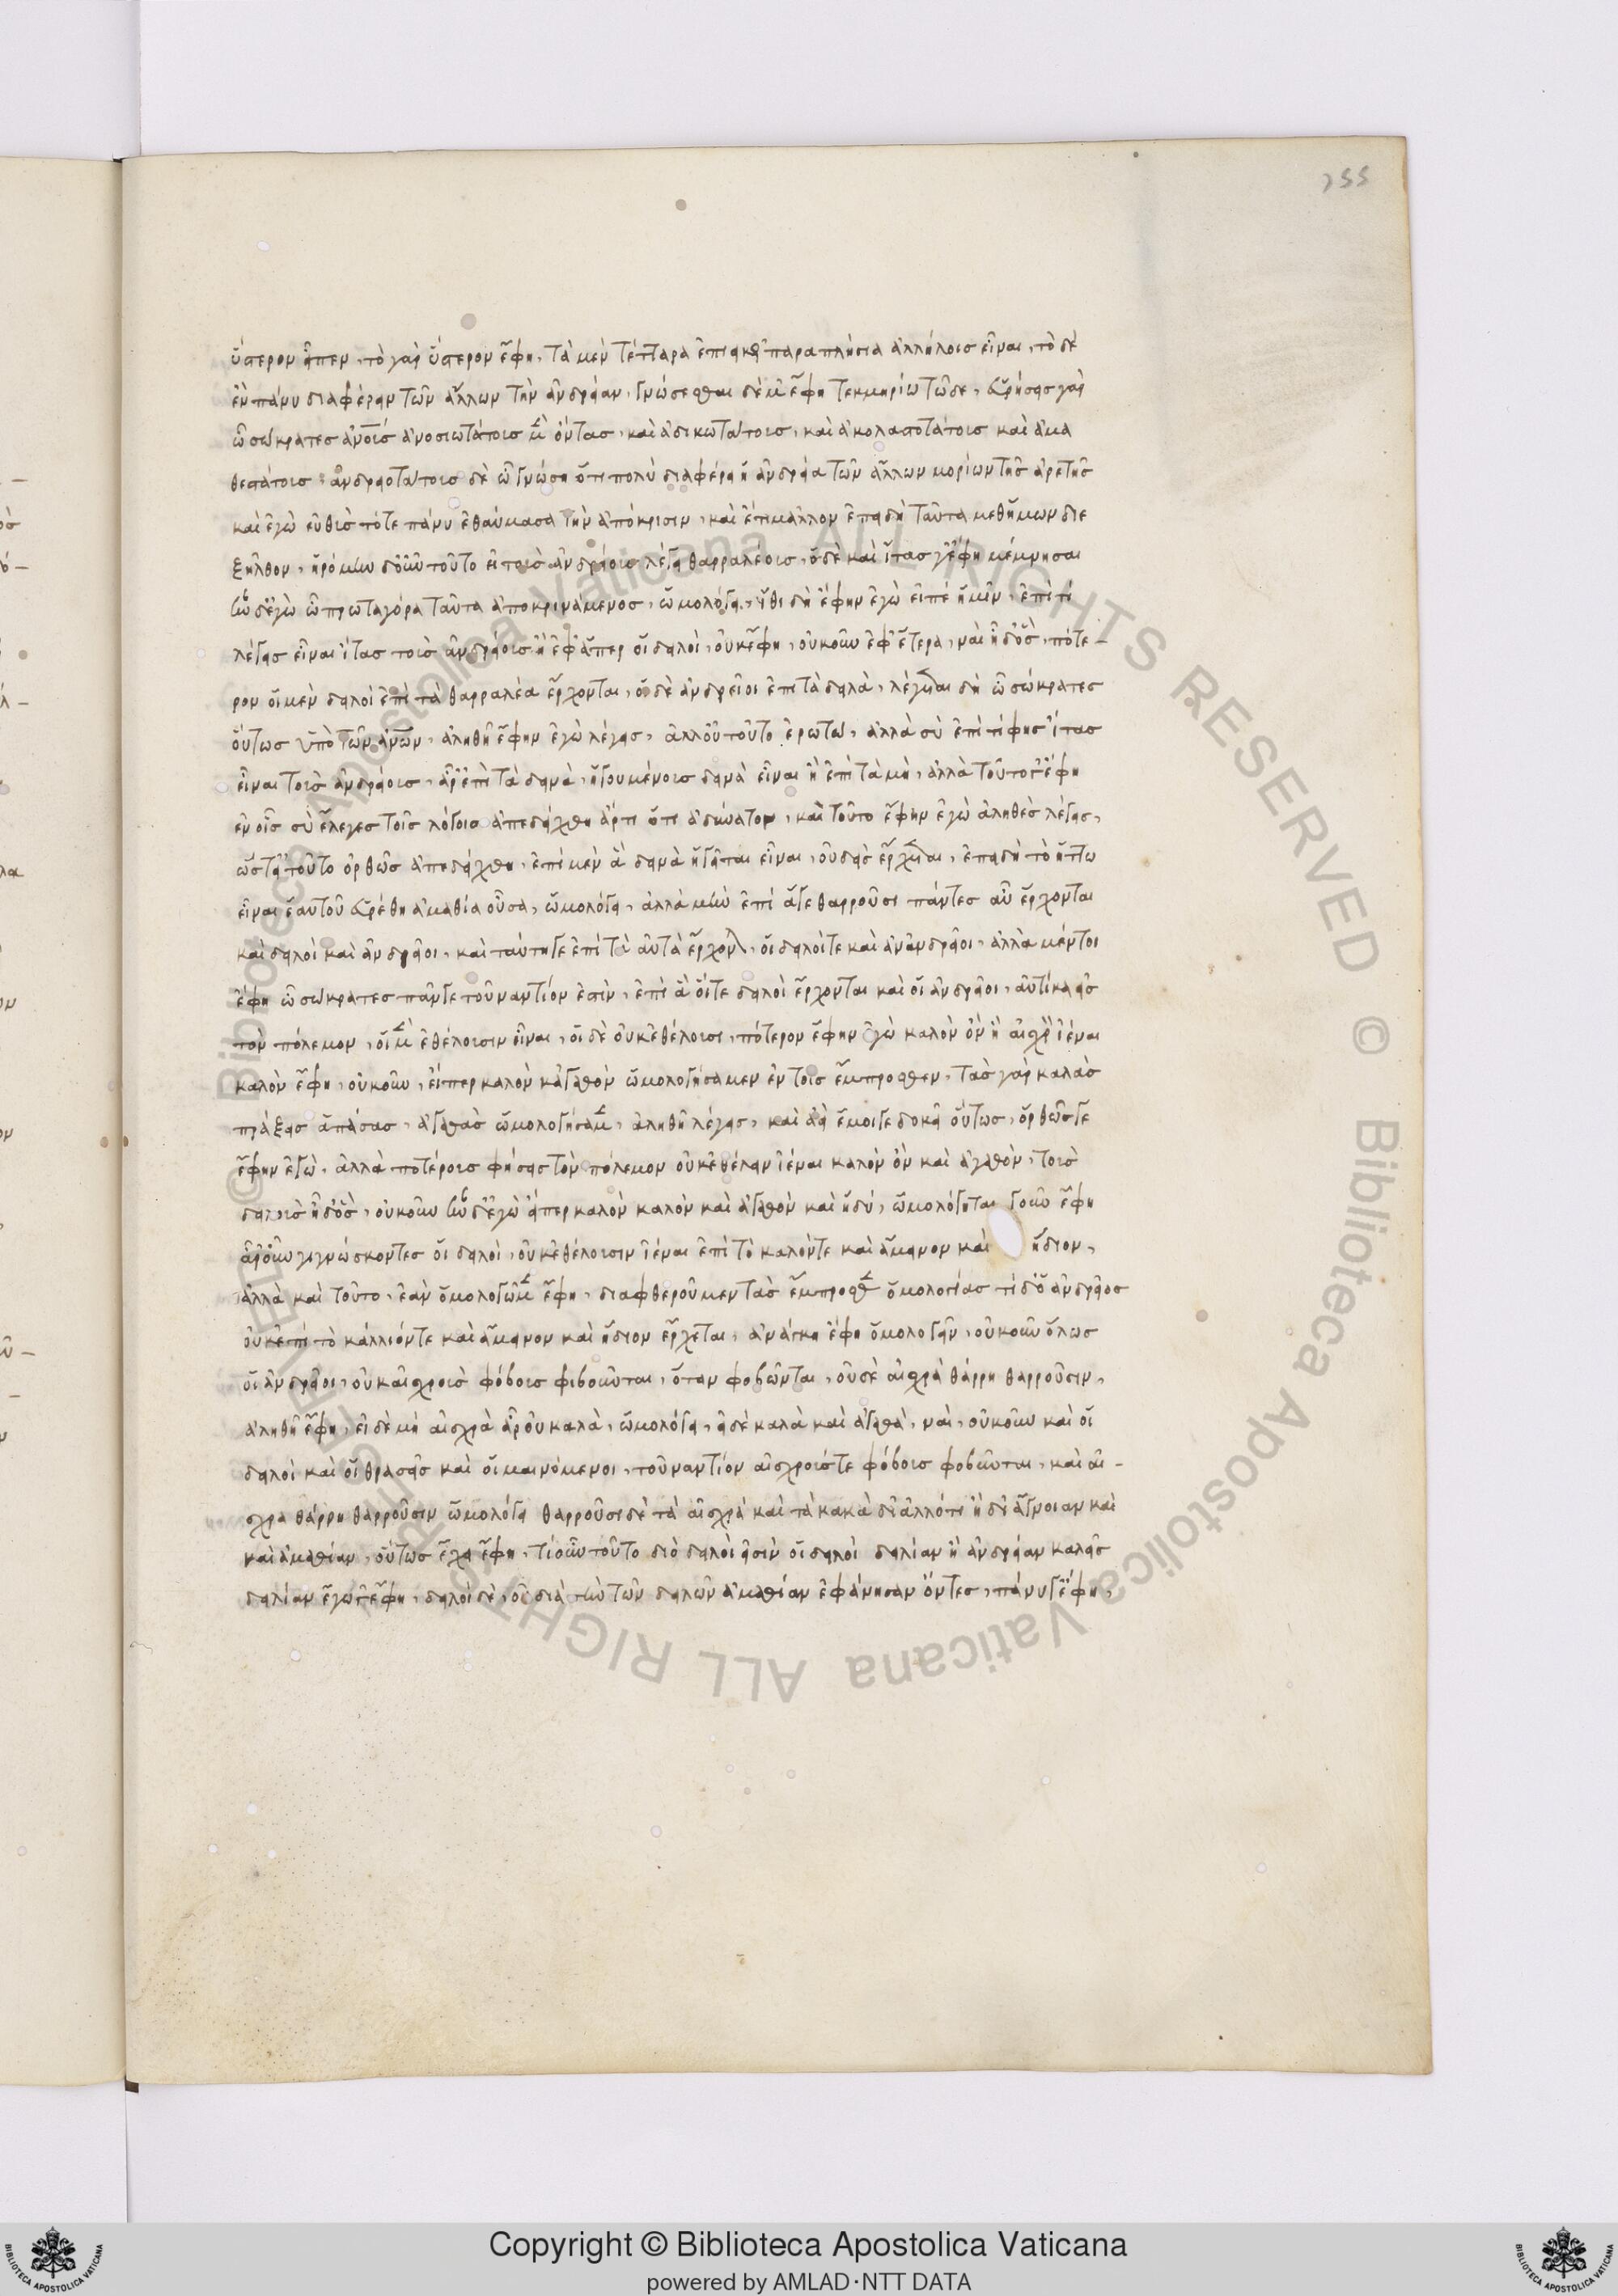 255
ὕστερον εἶπεν, τὸ γὰρ ὕστερον ἔφη, τὰ μὲν τέτταρα ἐπιεικῶς παραπλήσια ἀλλήλοις εἶναι, τὸ δὲ
ἓν πάνυ διαφέρειν τῶν ἄλλων τὴν ἀνδρείαν, γνώσεσθαι δέ μ' ἔφη τεκμηρίω τῶδε, εὑρήσεις γὰρ
ὦ σώκρατες ἀνοῖς ἀνοσιωτάτοις μὲν ὄντας, καὶ ἀδικωτάτοις, καὶ ἀκολαστοτάτοις καὶ ἀμα
θεστάτοις ἀνδρειοτάτοις δὲ ὧ γνώση ὅτι πολὺ διαφέρει ἡ ἀνδρεία τῶν ἄλλων μορίων τῆς ἀρετῆς
καὶ ἐγὼ εὐθὺς τότε πάνυ ἐθαύμασα τὴν ἀπόκρισιν, καὶ ἔτι μᾶλλον ἐπειδὴ ταῦτα μεθ' ὑμῶν διε
ξῆλθον, ἠρόμην δ' οὖν τοῦτο εἰ τοὺς ἀνδρείους λέγει θαρραλέους, ὁ δὲ καὶ ἴτας γ' ἔφη μέμνησαι
ἦν δ' ἐγὼ ὦ πρωταγόρα ταῦτα ἀποκρινάμενος, ὡμολόγει, ἴθι δὴ ἔφην ἐγὼ εἰπὲ ἡμῖν, ἐπὶ τί
λέγεις εἶναι ἴτας τοὺς ἀνδρείους ἢ ἐφ' ἅπερ οἱ δειλοὶ, οὐκ ἔφη, οὐκοῦν ἐφ' ἕτερα, ναὶ ἦ δ' ὃς, πότε-
ρον οἱ μὲν δειλοὶ ἐπὶ τὰ θαρραλέα ἔρχονται, οἱ δὲ ἀνδρεῖοι ἐπὶ τὰ δεινὰ, λέγεται δὴ ὦ σώκρατες
οὕτως ὑπὸ τῶν ἀνῶν, ἀληθῆ ἔφην ἐγὼ λέγεις, ἀλλ' οὐ τοῦτο ἐρωτῶ, ἀλλὰ σὺ ἐπὶ τί φὴς ἴτας
εἶναι τοὺς ἀνδρείους, ἆρ' ἐπὶ τὰ δεινὰ, ἡγουμένους δεινὰ εἶναι ἢ ἐπὶ τὰ μὴ, ἀλλὰ τοῦτο γ' ἔφη
ἐν οἷς σὺ ἔλεγες τοῖς λόγοις ἀπεδείχθη ἄρτι ὅτι ἀδύνατον, καὶ τοῦτο ἔφην ἐγὼ ἀληθὲς λέγεις,
ὥστ' εἰ τοῦτο ὀρθῶς ἀπεδείχθη, ἐπὶ μὲν ἃ δεινὰ ἡγεῖται εἶναι, οὐδεὶς ἔρχεται, ἐπειδὴ τὸ ἥττω
εἶναι ἑαυτοῦ εὑρέθη ἀμαθία οὖσα, ὡμολόγει, ἀλλὰ μὴν ἐπὶ ἅ γε θαρροῦσι πάντες αὖ ἔρχονται
καὶ δειλοὶ καὶ ἀνδρεῖοι, καὶ ταύτη γε ἐπὶ τὰ αὐτὰ ἔρχονται, οἱ δειλοί τε καὶ ἀνδρεῖοι, ἀλλὰ μέντοι
ἔφη ὦ σώκρατες πᾶν γε τοὐναντίον ἐστὶν, ἐπὶ ἃ οἵ τε δειλοὶ ἔρχονται καὶ οἱ ἀνδρεῖοι, αὐτίκα εἰς
τὸν πόλεμον, οἱ μὲν ἐθέλουσιν εἶναι, οἱ δὲ οὐκ ἐθέλουσι, πότερον ἔφην ἐγὼ καλὸν ὂν ἢ αἰσχρὸν ἰέναι
καλὸν ἔφη, οὐκοῦν, εἴπερ καλὸν κἀγαθὸν ὡμολογήσαμεν ἐν τοῖς ἔμπροσθεν, τὰς γὰρ καλὰς
πράξεις ἁπάσας, ἀγαθὰς ὡμολογήσαμεν, ἀληθῆ λέγεις, καὶ ἀεὶ ἔμοιγε δοκεῖ οὕτως, ὀρθῶς γε
ἔφην ἐγὼ, ἀλλὰ ποτέρους φήσεις τὸν πόλεμον οὐκ ἐθέλειν ἰέναι καλὸν ὂν καὶ ἀγαθὸν, τοὺς
δειλοὺς ἦ δ' ὃς, οὐκοῦν ἦν δ' ἐγὼ εἴπερ καλὸν καλὸν καὶ ἀγαθὸν καὶ ἡδύ, ὡμολόγηται γοῦν ἔφη
ἆρ' οὖν γιγνώσκοντες οἱ δειλοὶ, οὐκ ἐθέλουσιν ἰέναι ἐπὶ τὸ καλόν τε καὶ ἄμεινον καὶ ἥδιον,
ἀλλὰ καὶ τοῦτο, ἐὰν ὁμολογῶμεν ἔφη, διαφθεροῦμεν τὰς ἔμπροσθεν ὁμολογίας τί δ' ὁ ἀνδρεῖος
οὐκ ἐπὶ τὸ κάλλιόν τε καὶ ἄμεινον καὶ ἥδιον ἔρχεται, ἀνάγκη ἔφη ὁμολογεῖν, οὐκοῦν ὅλως
οἱ ἀνδρεῖοι, οὐκ αἰσχροὺς φόβους φοβοῦνται, ὅταν φοβῶνται, οὐδὲ αἰσχρὰ θάρρη θαρροῦσιν,
ἀληθῆ ἔφη, εἰ δὲ μὴ αἰσχρὰ ἆρ' οὐ καλὰ, ὡμολόγει, εἰ δὲ καλὰ καὶ ἀγαθὰ, ναὶ, οὐκοῦν καὶ οἱ
δειλοὶ καὶ οἱ θρασεῖς καὶ οἱ μαινόμενοι, τοὐναντίον αἰσχρούς τε φόβους φοβοῦνται, καὶ αἰ-
σχρα θάρρη θαρροῦσιν ὡμολόγει θαρροῦσι δὲ τὰ αἰσχρὰ καὶ τὰ κακὰ δι' ἄλλό τι ἢ δι' ἄγνοιαν καὶ
καὶ ἀμαθίαν, οὕτως ἔχει ἔφη, τί οὖν τοῦτο διὸ δειλοί εἰσιν οἱ δειλοὶ δειλίαν ἢ ἀνδρείαν καλεῖς
δειλίαν ἔγωγ' ἔφη, δειλοὶ δὲ, οὐ διὰ τὴν τῶν δεινῶν ἀμαθίαν ἐφάνησαν ὄντες, πάνυ γ' ἔφη,
© Biblioteca Apostolica Vaticana ALL RIGHTS RESERVED
© Biblioteca Apostolica Vaticana ALL RIGHTS RESERVED
Copyright © Biblioteca Apostolica Vaticana
powered by AMLAD·NTT DATA
BIBLIOTECA APOSTOLICA VATICANA
BIBLIOTECA APOSTOLICA VATICANA